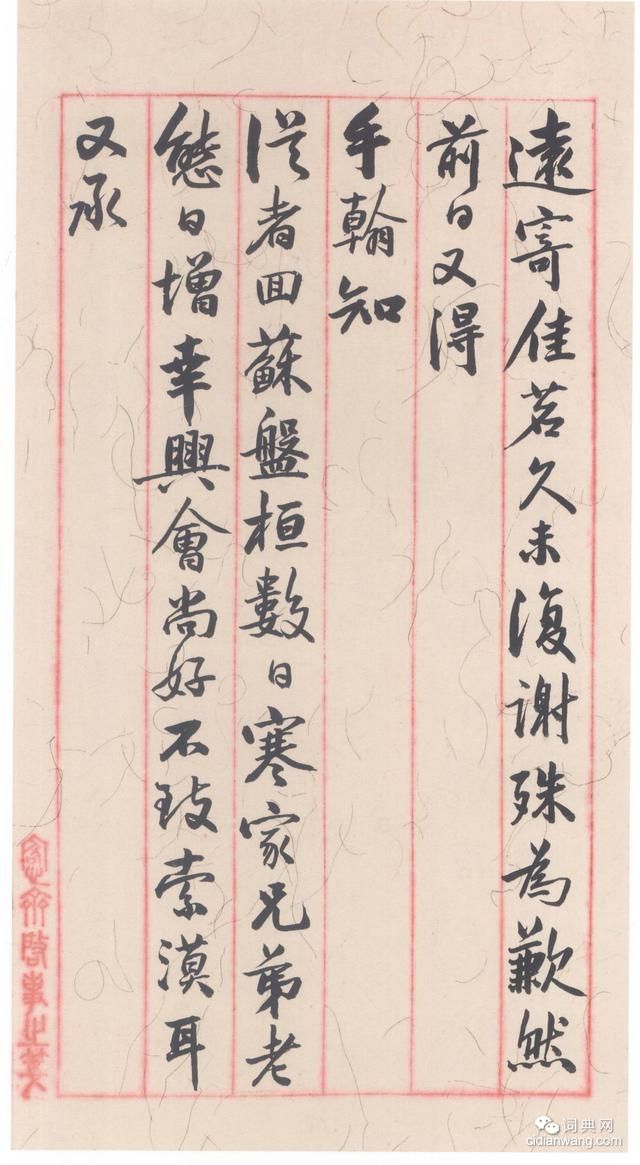 遠寄佳茗久未復謝殊為歉然
前日又得
手翰知
從者回蘇盤桓數日寒家兄弟老
態日增幸興會尚好不致索漠耳
又承
啓事之箋
词典网
cidianwang.com